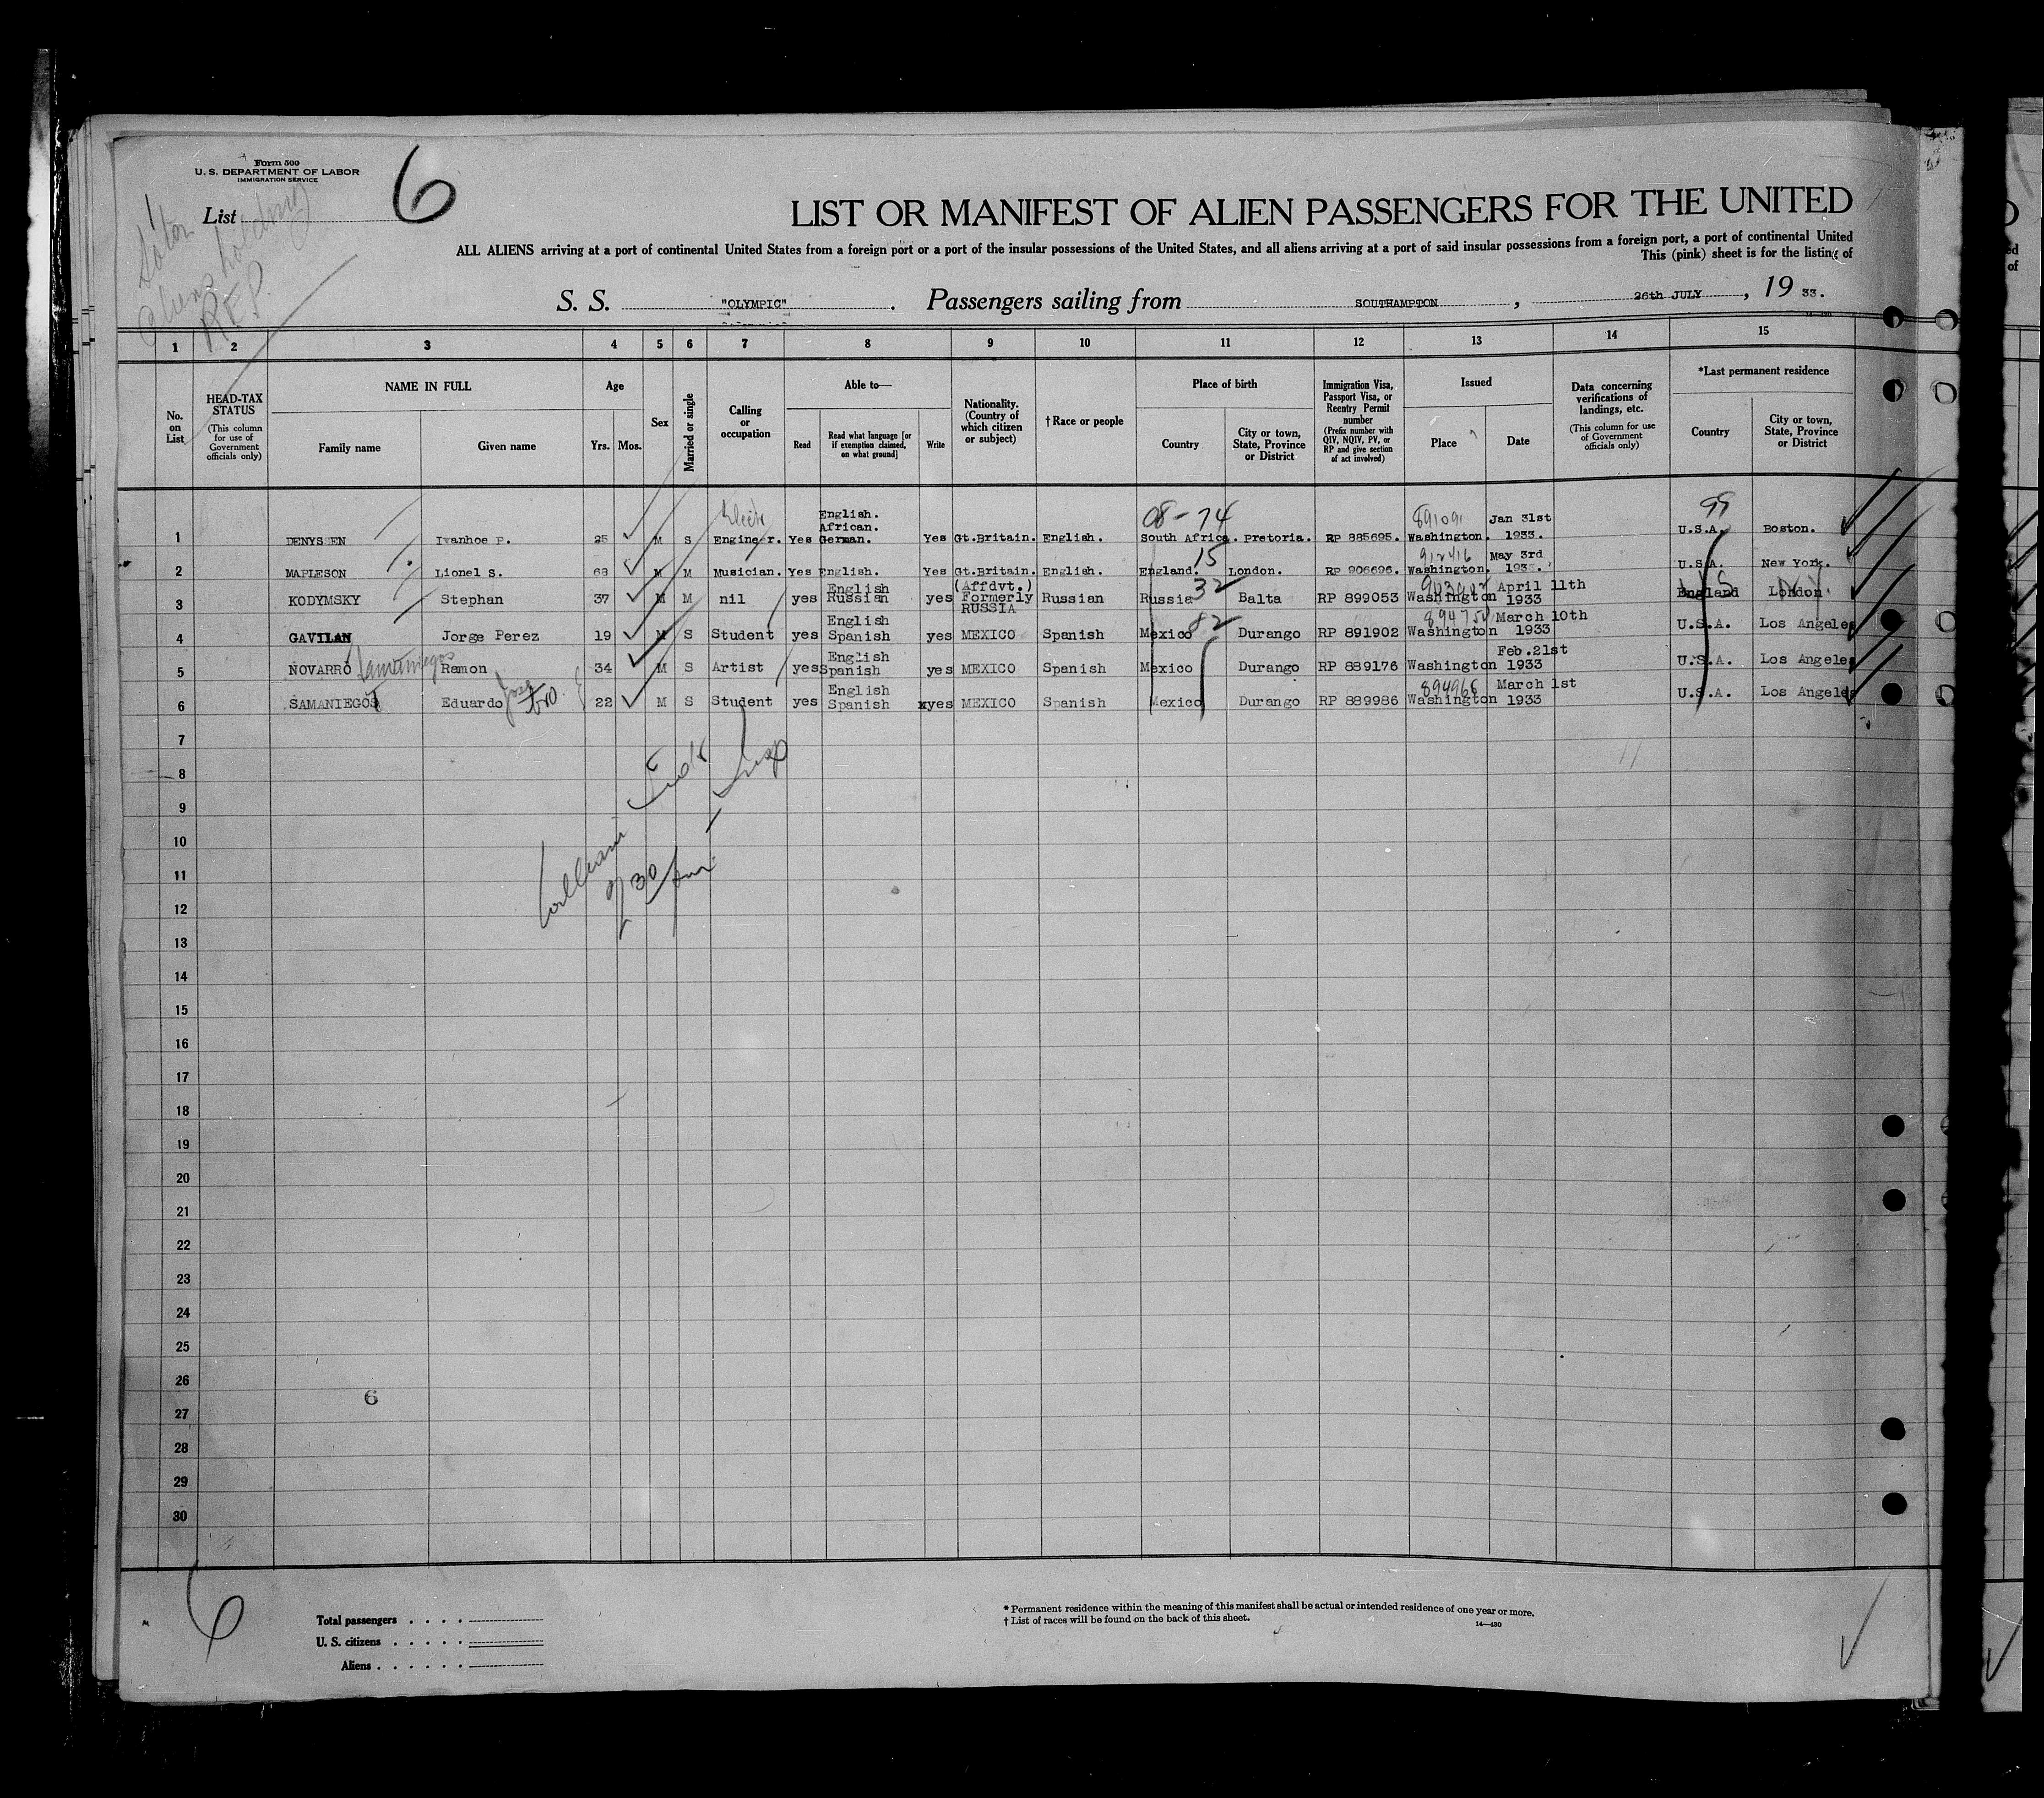 Form 500
U. S. DEPARTMENT OF LABOR
IMMIGRATION SERVICE
List 6
Aliens holding
R.E.P.
LIST OR MANIFEST OF ALIEN PASSENGERS FOR THE UNITED
ALL ALIENS arriving at a port of continental United States from a foreign port or a port of the insular possessions of the United States, and all aliens arriving at a port of said insular possessions from a foreign port, a port of continental United
This (pink) sheet is for the listing of
S. S. "OLYMPIC". Passengers sailing from SOUTHAMPTON, 26th JULY, 19 33.
1 2 3 4 5 6 7 8 9 10 11 12 13 14 15
No. on List
HEAD-TAX STATUS (This column for use of Government officials only)
NAME IN FULL
Family name Given name
Age
Yrs. Mos.
Sex
Married or single
Calling or occupation
Able to—
Read Read what language [or if exemption claimed, on what ground] Write
Nationality. (Country of which citizen or subject)
†Race or people
Place of birth
Country City or town, State, Province or District
Immigration Visa, Passport Visa, or Reentry Permit number (Prefix number with QIV, NQIV, PV, or RP and give section of act involved)
Issued
Place Date
Data concerning verifications of landings, etc. (This column for use of Government officials only)
*Last permanent residence
Country City or town, State, Province or District
08-74 99
1 DENYSSEN Ivanhoe P. 25 M S Engineer. Yes English. African. German. Yes Gt.Britain. English. South Africa. Pretoria. RP 885695. Washington. Jan 31st 1933. U.S.A. Boston.
15
2 MAPLESON Lionel S. 68 M M Musician. Yes English. Yes Gt.Britain. English. England. London. RP 906696. Washington. May 3rd 193 . U.S.A. New York.
32
3 KODYMSKY Stephan 37 M M nil yes English Russian yes (Affdvt.) Formerly RUSSIA Russian Russia Balta RP 899053 Washington April 11th 1933 England London. U S
82 894750
4 GAVILAN Jorge Perez 19 M S Student yes English Spanish yes MEXICO Spanish Mexico Durango RP 891902 Washington March 10th 1933 U.S.A. Los Angeles
5 NOVARRO Samaniegos Ramon 34 M S Artist yes English Spanish yes MEXICO Spanish Mexico Durango RP 889176 Washington Feb.21st 1933 U.S.A. Los Angeles
894966
6 SAMANIEGOS Eduardo Jose 22 M S Student yes English Spanish xyes MEXICO Spanish Mexico Durango RP 889986 Washington March 1st 1933 U.S.A. Los Angeles
7
8
9
10
11
12
13
14
15
16
17
18
19
20
21
22
23
24
25
26
6
27
28
29
30
6
Total passengers . . . .
U. S. citizens . . . . .
Aliens . . . . . .
* Permanent residence within the meaning of this manifest shall be actual or intended residence of one year or more.
† List of races will be found on the back of this sheet.
14—430